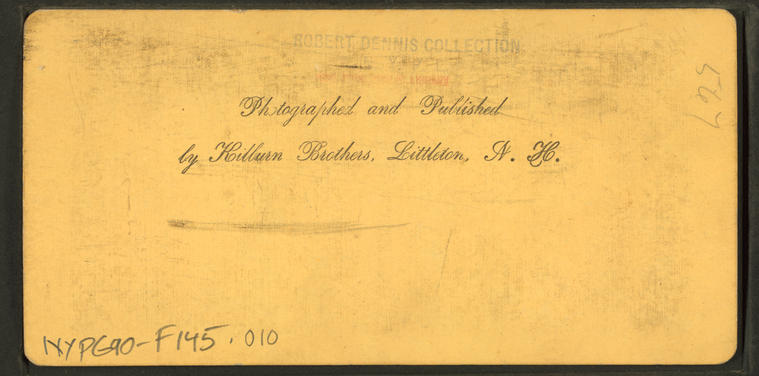 ROBERT DENNIS COLLECTION
Photographed and Published
by Kilburn Brothers, Littleton, N. H.
NYPG90-F145.010